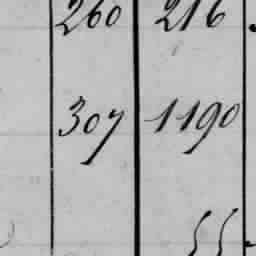 260 216
307 1190
55